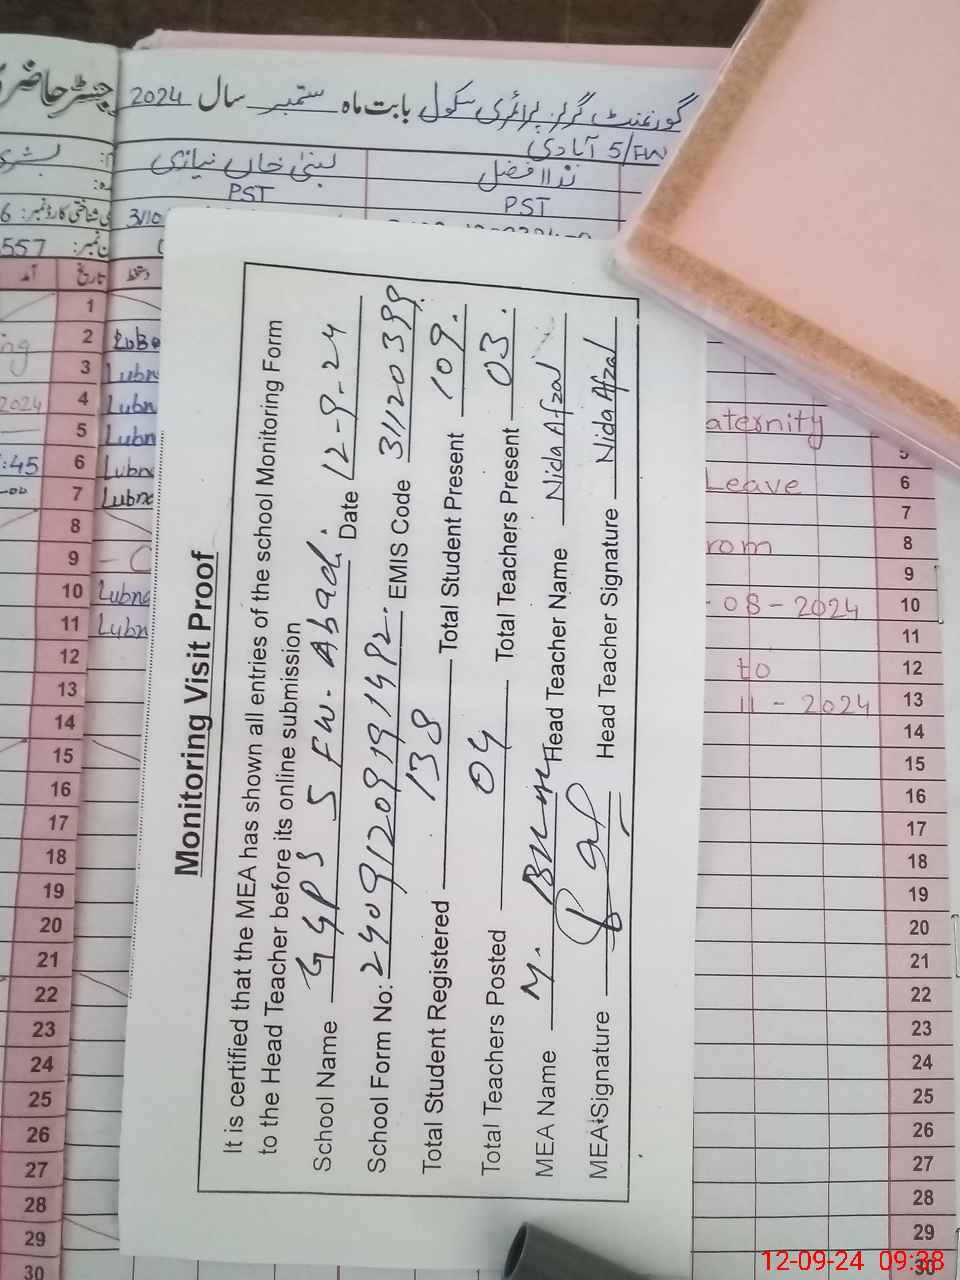 جسٹر حاضری
گورنمنٹ گرلز پرائمری سکول بابت ماہ ستمبر سال 2024
5/FW آبادی
بشریٰ
لبنیٰ خان نیازی
ندا افضل
PST
PST
شناختی کارڈ نمبر: 6
3110
557
آمد
تاریخ
دستخط
Monitoring Visit Proof
It is certified that the MEA has shown all entries of the school Monitoring Form
to the Head Teacher before its online submission
School Name GGPS 5 FW. Abadi. Date 12-9-24
School Form No: EMIS Code 31120399.
Total Student Registered 138 Total Student Present 109.
Total Teachers Posted 04 Total Teachers Present 03.
MEA Name M. Head Teacher Name Nida Afzal
MEA Signature Head Teacher Signature Nida Afzal
1
2 Lubn
3 Lubn
4 Lubn
5 Lubn
6 Lubna
7 Lubna
8
9 - C
10 Lubna
11 Lubn
12
13
14
15
16
17
18
19
20
21
22
23
24
25
26
27
28
29
30
ng
2024
:45
aternity
Leave
rom
-08-2024
to
11-2024
5
6
7
8
9
10
11
12
13
14
15
16
17
18
19
20
21
22
23
24
25
26
27
28
29
30
12-09-24 09:38